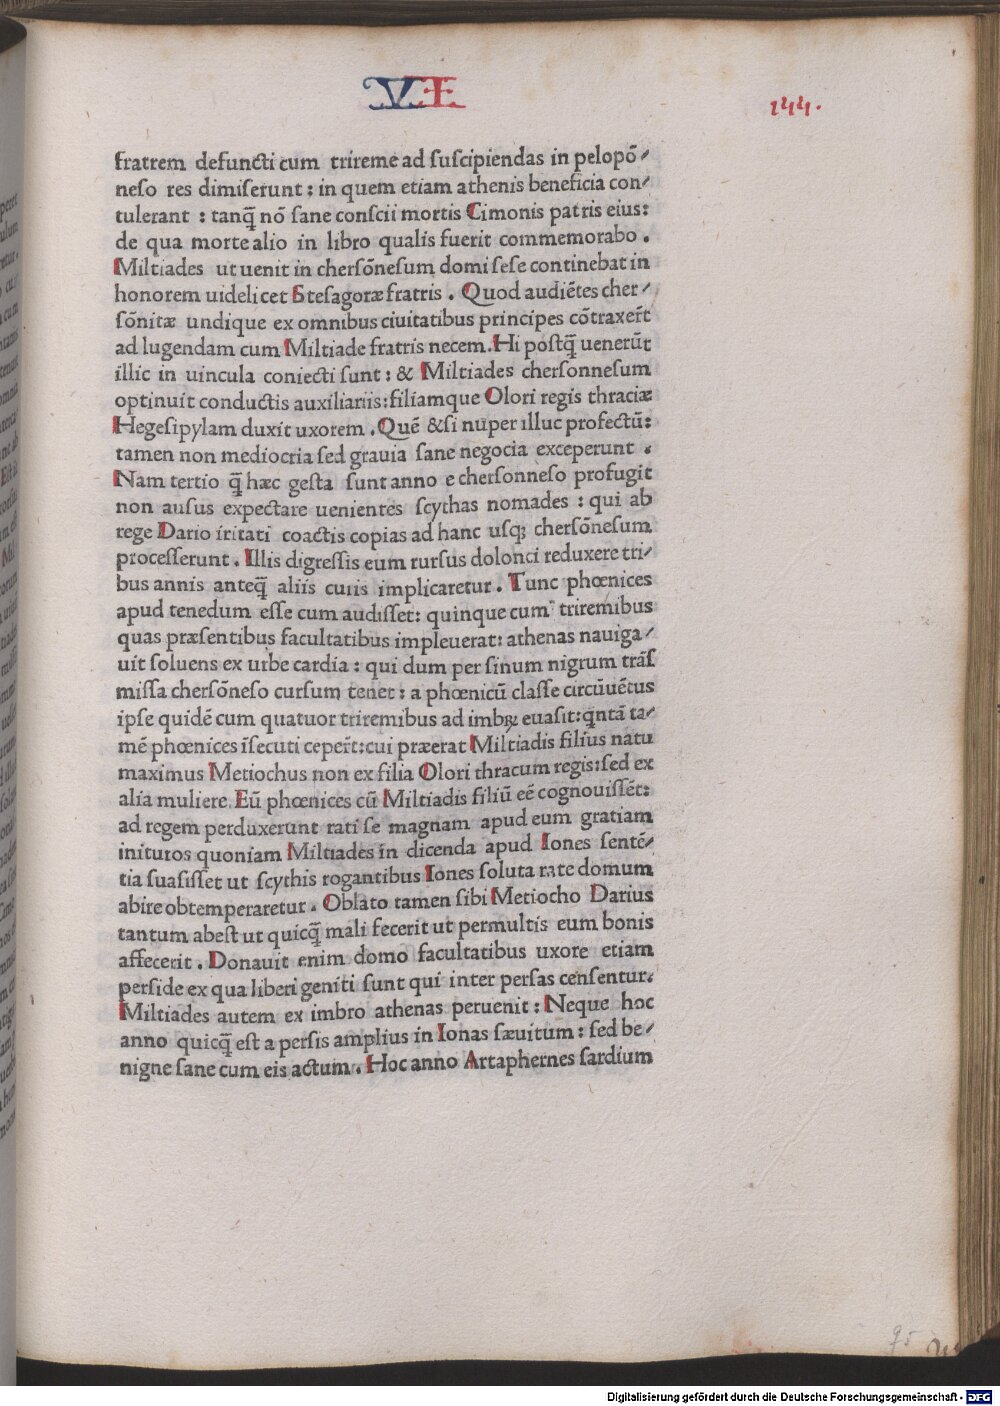 VI
144.
fratrem defuncti cum trireme ad ſuſcipiendas in pelopō⸗
neſo res dimiſerunt : in quem etiam athenis beneficia con⸗
tulerant : tanq̄ nō ſane conſcii mortis Cimonis patris eius:
de qua morte alio in libro qualis fuerit commemorabo .
Miltiades ut uenit in cherſōneſum domi ſeſe continebat in
honorem uidelicet Steſagoræ fratris . Quod audiētes cher⸗
ſōnitæ undique ex omnibus ciuitatibus principes cōtraxer̄t
ad lugendam cum Miltiade fratris necem. Hi poſtq̄ uenerūt
illic in uincula coniecti ſunt : & Miltiades cherſonneſum
optinuit conductis auxiliariis: filiamque Olori regis thraciæ
Hegeſipylam duxit uxorem . Quē & ſi nuper illuc profectū:
tamen non mediocria ſed grauia ſane negocia exceperunt .
Nam tertio q̄ hæc geſta ſunt anno e cherſonneſo profugit
non auſus expectare uenientes ſcythas nomades : qui ab
rege Dario iritati coactis copias ad hanc uſq; cherſōneſum
proceſſerunt . Illis digreſſis eum rurſus dolonci reduxere tri⸗
bus annis anteq̄ aliis curis implicaretur . Tunc phœnices
apud tenedum eſſe cum audiſſet: quinque cum triremibus
quas præſentibus facultatibus impleuerat: athenas nauiga⸗
uit ſoluens ex urbe cardia : qui dum per ſinum nigrum trāſ
miſſa cherſōneſo curſum tenet : a phœnicū claſſe circūuētus
ipſe quidē cum quatuor triremibus ad imbꝝ euaſit: qntā ta⸗
mē phœnices īſecuti ceper̄t: cui præerat Miltiadis filius natu
maximus Metiochus non ex filia Olori thracum regis: ſed ex
alia muliere. Eū phœnices cū Miltiadis filiū eē cognouiſſēt:
ad regem perduxerunt rati ſe magnam apud eum gratiam
inituros quoniam Miltiades in dicenda apud Iones ſentē⸗
tia ſuaſiſſet ut ſcythis rogantibus Iones ſoluta rate domum
abire obtemperaretur . Oblato tamen ſibi Metiocho Darius
tantum abeſt ut quicq̄ mali fecerit ut permultis eum bonis
affecerit . Donauit enim domo facultatibus uxore etiam
perſide ex qua liberi geniti ſunt qui inter perſas cenſentur.
Miltiades autem ex imbro athenas peruenit : Neque hoc
anno quicq̄ eſt a perſis amplius in Ionas ſæuitum : ſed be⸗
nigne ſane cum eis actum . Hoc anno Artaphernes ſardium
95
Digitalisierung gefördert durch die Deutsche Forschungsgemeinschaft - DFG